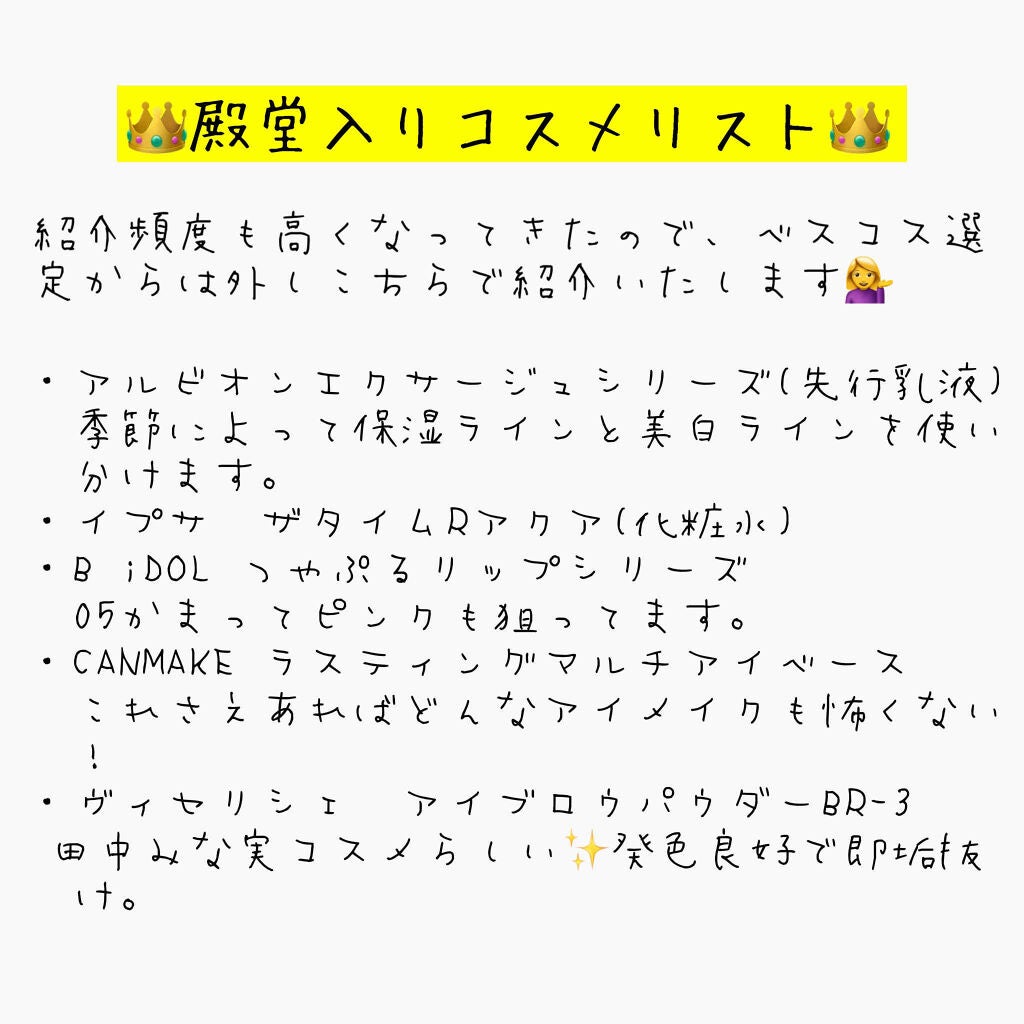 👑殿堂入りコスメリスト👑
紹介頻度も高くなってきたので、ベスコス選
定からは外しこちらで紹介いたします💁‍♀️
・アルビオンエクサージュシリーズ(先行乳液)
季節によって保湿ラインと美白ラインを使い
分けます。
・イプサ ザタイムRアクア(化粧水)
・B iDOL つやぷるリップシリーズ
05かまってピンクも狙ってます。
・CANMAKE ラスティングマルチアイベース
これさえあればどんなアイメイクも怖くない
!
・ヴィセリシェ アイブロウパウダーBR-3
田中みな実コスメらしい✨発色良好で即垢抜
け。